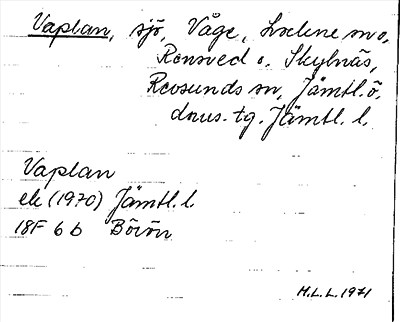 Vaplan, sjö, Våge, Lselene m o.
Rensved o. Skylnäs,
Revsunds sn, Jämtl. ö.
dms. tg. Jämtl. l.
Vaplan
ek (1970) Jämtl. l
18F 6 b Börön
H.L.L. 1971